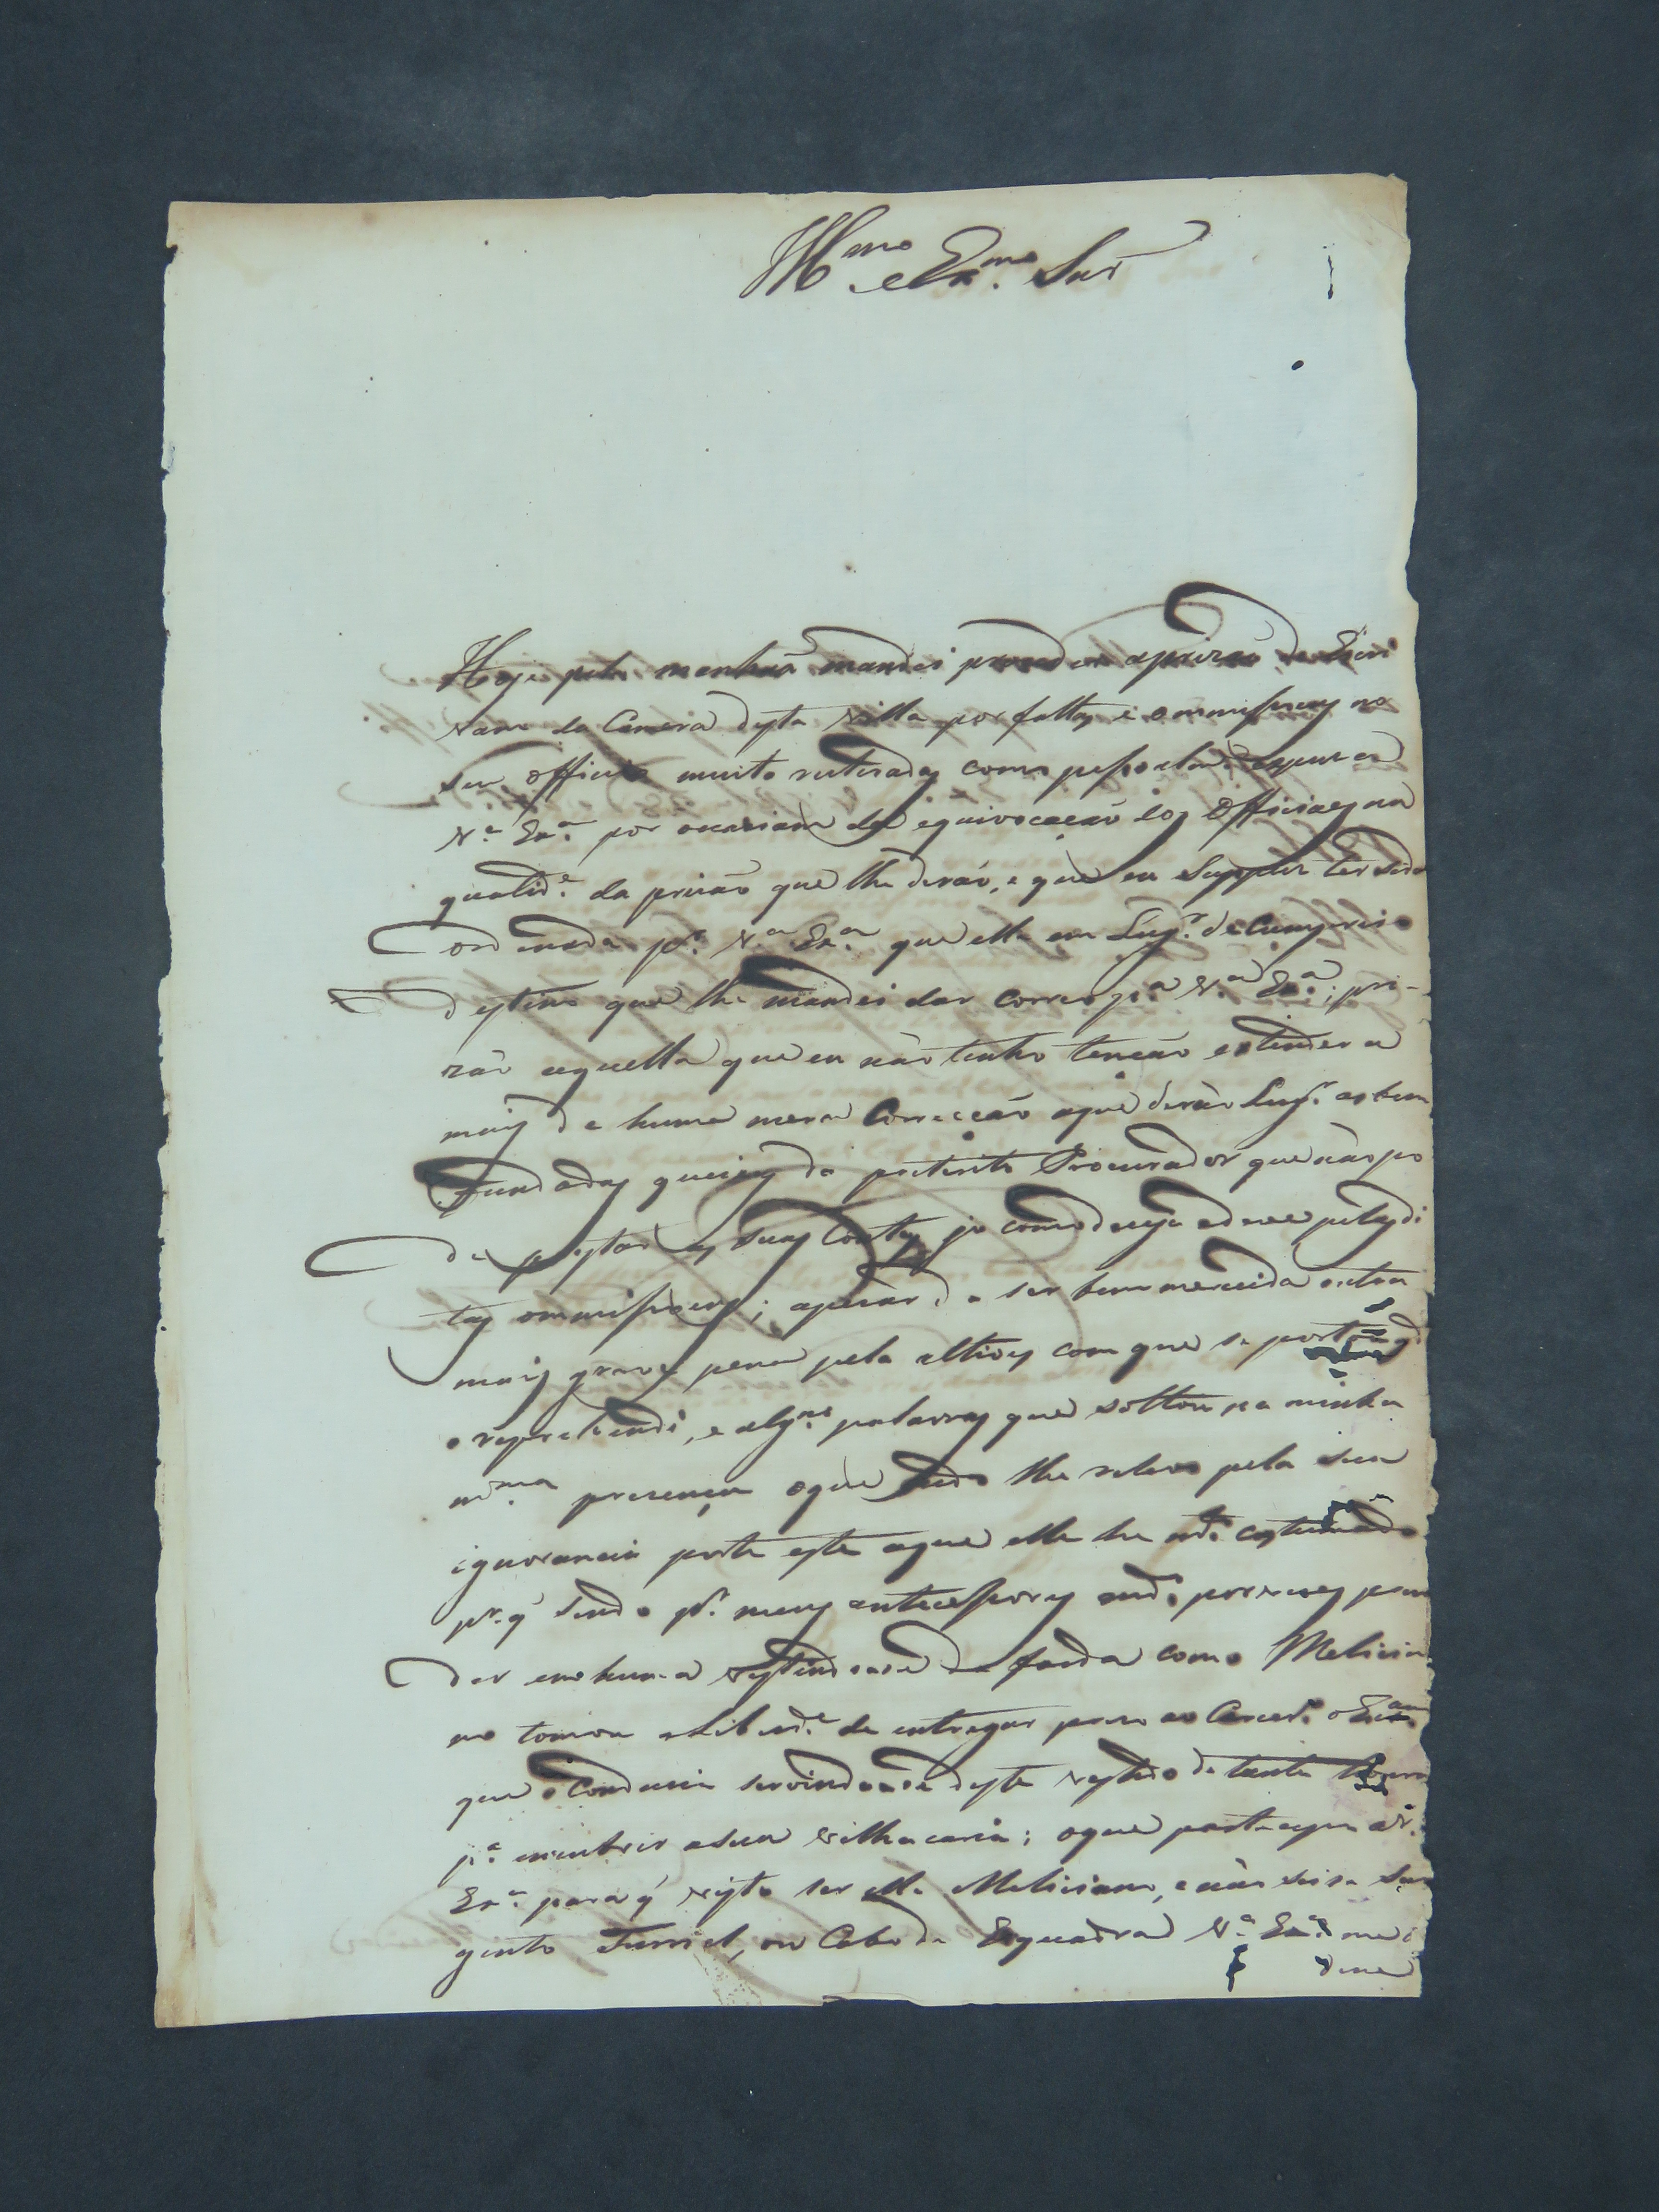 Illmo e Exmo Snr
Hoje pela menhãa mandei proceder a prizão do Escri
vam da Camera desta Villa por faltas e ommissoens no
seu officio muito reiteradas como pessoalm.e expuz a
V.a Ex.a por occasiam da equivocação dos Officiaes na
qualid.e da prizão que lhe derão, e que eu Suppuz ter sido
ordenada p.r V.a Ex.a que elle em Lug.r de Cumprir o
destino que lhe mandei dar correo p.a V.a Ex.a; pri-
zão aquella que eu não tenho tenção estender a
mais de huma mera Correcção a que derão Lug.r as bem
fundadas queixas do preterito Procurador que não po
de prestar as suas Contas ja como deveja e deve pelas di
tas ommissoens; apezar de ser bem merecida outra
mais grave pena pela altivez com que se portou qdo
o reprehendi, e algs palavras que soltou na minha
mma presença o que tudo lhe relevo pela sua
ignorancia posto este a que elle he mto costumado
pr q sendo pr meus antecessores mdo por vezes pren
der em huma vestindo-se da farda como Melicia
no tomou a liberde de entregar prezo ao Carcer.o o
que o Conduzia servindo-se deste vestido de tanta
p.a encubrir a sua velhacaria; o que partecipo a V.
Ex.a para q visto ser elle Meliciano, e não sei se Sar
gento Furriel, ou Cabo de Esquadra V.a Ex.a me